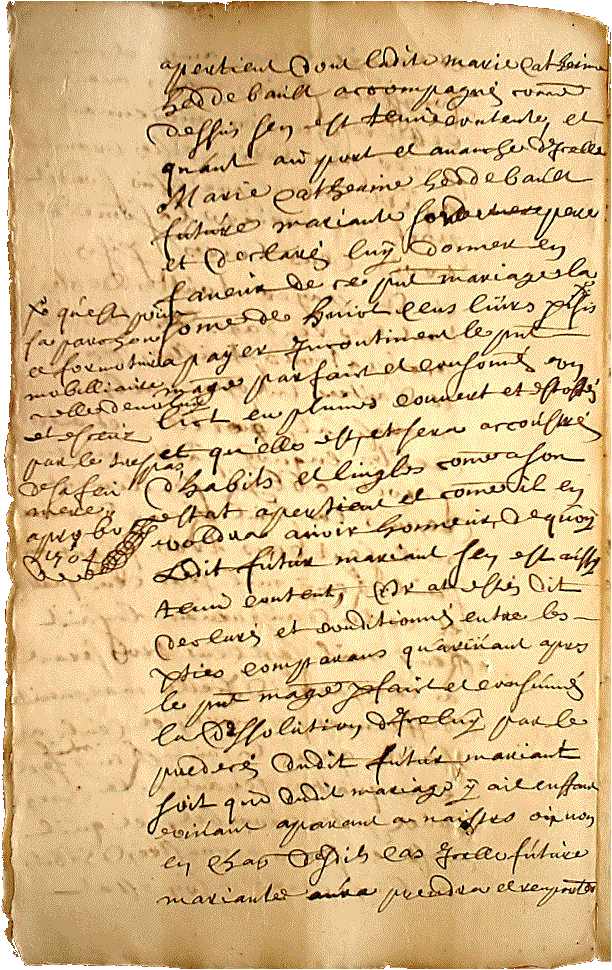 apertient dont ladite marie catherine
heddebault accompagnée come
dessus sen est tenue contente, et
quant au port et avanche d'Icelle
Marie Catherine heddebault
future mariante pere
et declaré luy donner en
faveur de ce pnt mariage la
some de huict cens livres ptis
a payer Incontinent le pnt
mage parfaict et consomé un
lict en plume couvert et estoffé
et qu'elle est, et sera accoustré
d'habits et linges come a son
estat apertient et come il en
voldra avoir honneur, de quoy
Ledit futur mariant sen est aussy
tenu content, Or at esté dit
declaré et conditionné entre les
pties comparans qu'arivant apres
le pnt mage pfaict et consumé
la dissolution d'Iceluy par le
predecés dudit futur mariant
soit que dudit mariage y ait enffant
vivant aparant a naistre ou non
en chas desdits cas Icelle future
mariante aura prendra et remportera
qu'est pour
sa parchon
et formoture
mobilliaire
a elle devolue
et esceue
par le trespas
de sa feu
mere
aprobé